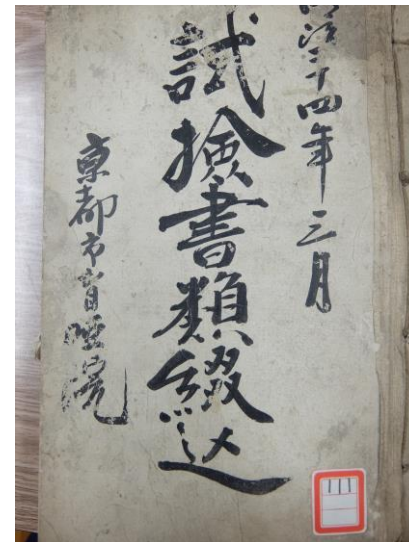 明治三十四年三月
試験書類綴込
京都市盲唖院
111